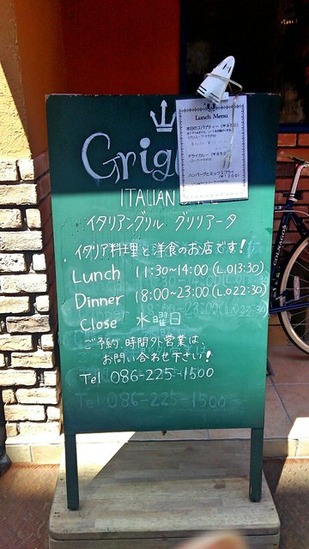 Lunch Menu
ITALIAN
イタリアングリル グリリアータ
イタリア料理と洋食のお店です!
Lunch 11:30~14:00 (L.O13:30)
Dinner 18:00~23:00 (L.O22:30)
Close 水曜日
ご予約、時間外営業は、
お問い合わせ下さい!
Tel 086-225-1500